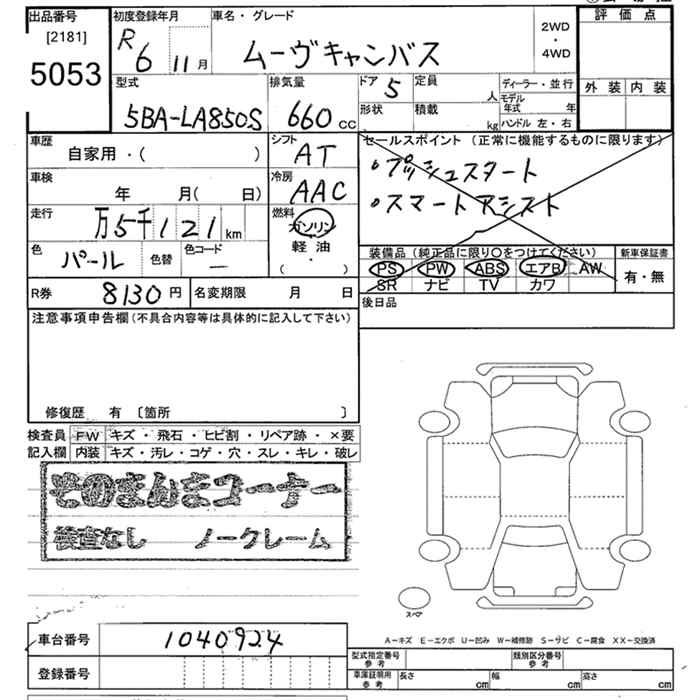 出品番号 初度登録年月 車名・グレード 評価点
[2181] R6 11月 ムーヴキャンバス 2WD・4WD
5053
型式 排気量 ドア 5 定員 人 ディーラー・並行 外装 内装
5BA-LA850S 660cc 形状 積載 kg モデル年式 年
ハンドル 左・右
車歴 シフト セールスポイント(正常に機能するものに限ります)
自家用・( ) AT ・プッシュスタート
車検 冷房 ・スマートアシスト
年 月(日) AAC
走行 燃料
万5千121km ガソリン
色 色替 色コード 軽油 装備品(純正品に限り○をつけてください) 新車保証書
パール — ・( ) PS PW ABS エアB AW 有・無
SR ナビ TV カワ
R券 8130円 名変期限 月 日 後日品
注意事項申告欄(不具合内容等は具体的に記入して下さい)
修復歴 有 〔箇所 〕
検査員 FW キズ・飛石・ヒビ割・リペア跡・×要
記入欄 内装 キズ・汚レ・コゲ・穴・スレ・キレ・破レ
そのまんまコーナー
検査なし ノークレーム
スペア
A−キズ E−エクボ U−凹み W−補修跡 S−サビ C−腐食 XX−交換済
車台番号 1040924 型式指定番号 参考 類別区分番号 参考
登録番号 車庫証明用 参考 長さ cm 幅 cm 高さ cm